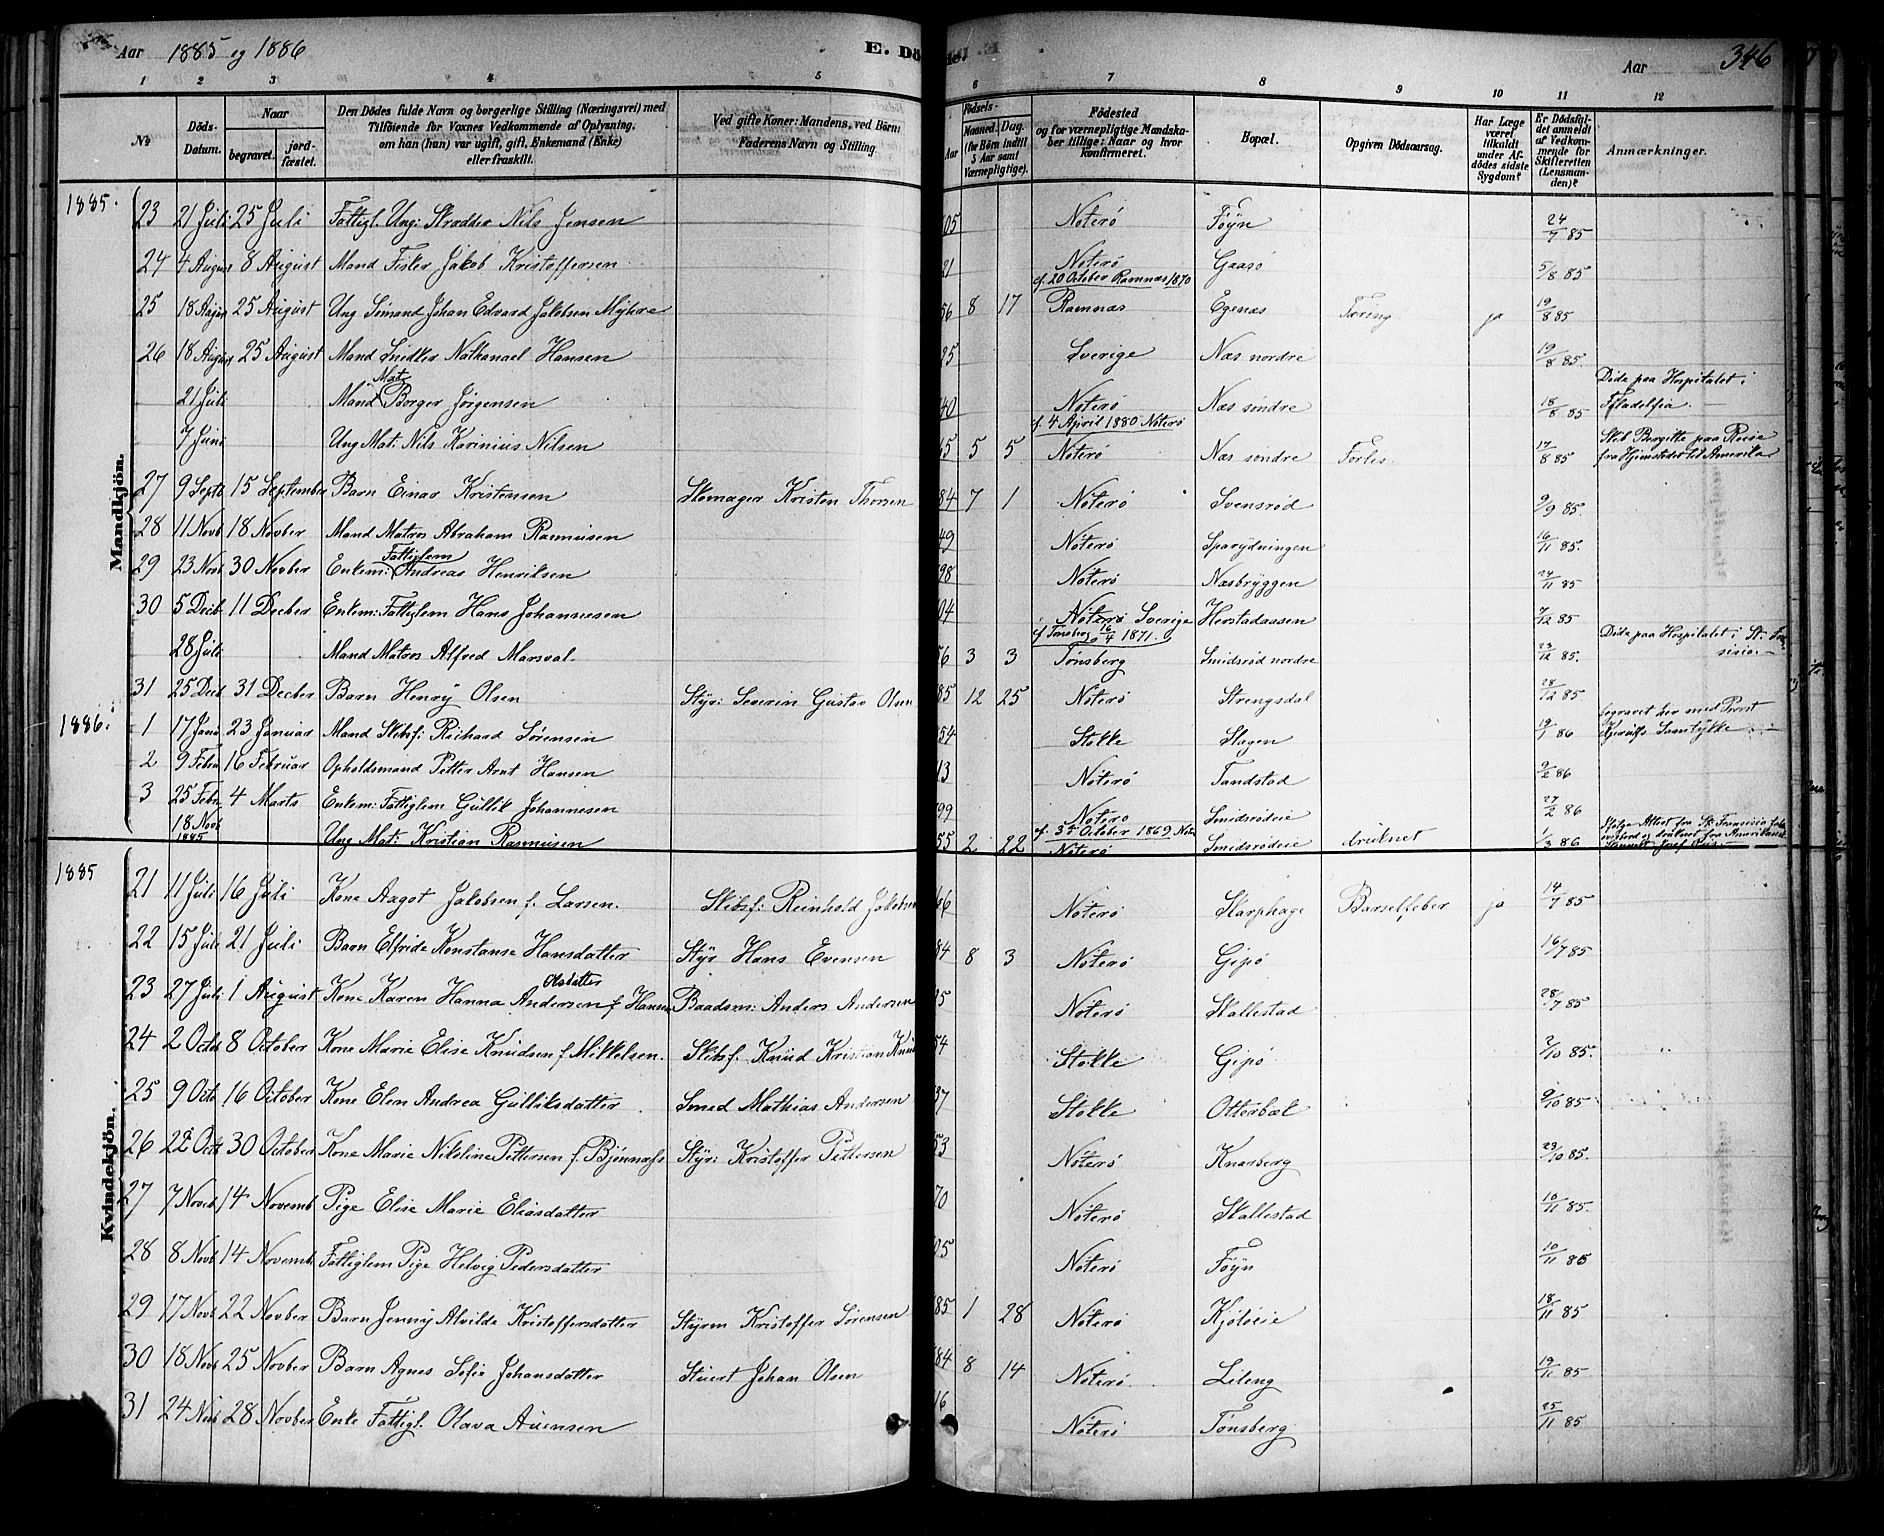 Aar 1885 og 1886 E. Dö
346
Aar
1 2 3 4 5 6 7 8 9 10 11 12
No
Döds-Datum.
Naar
begravet.
jord-fæstet.
Den Dödes fulde Navn og borgerlige Stilling (Næringsvei) med
Tilföiende for Voxnes Vedkommende af Oplysning,
om han (hun) var ugift, gift, Enkemand (Enke)
eller fraskilt.
Ved gifte Koner: Mandens, ved Börn:
Faderens Navn og Stilling.
Födsels-
Aar
Maaned. Dag.
(for Börn indtil
5 Aar samt
Værnepligtige).
Födested
og for værnepligtige Mandska-
ber tillige: Naar og hvor
konfirmeret.
Bopæl.
Opgiven Dödsaarsag.
Har Læge
været
tilkaldt
under Af-
dödes sidste
Sygdom?
Er Dödsfal-
det anmeldt
af Vedkom-
mende for
Skifteretten
(Lensman-
den)?
Anmærkninger.
Mandkjön.
1885.
23 21 Juli 25 Juli Fattigl. Ung: Skrædder Nils Jensen 05 Nøterø Føyn 24/7 85
24 4 August 8 August Mand Fisker Jakob Kristoffersen 21 Nøterø Gaasø 5/8 85
cf. 20 October Ramnæs 1870
25 18 August 25 August Ung Sømand Johan Edvard Jakobsen Myhre 56 8 17 Ramnæs Egenæs Tæring ja 19/8 85
26 18 August 25 August Mand Snidker Nathanael Hansen 25 Sverige Næs nordre 19/8 85
21 Juli Mand Mat. Borger Jørgensen 40 Nøterø Næs søndre 18/8 85 Døde paa Hospitalet i
Filadelfia.
cf. 4 April 1880 Nøterø
7 Juni Ung Mat: Nils Karinius Nilsen 65 5 5 Nøterø Næs søndre Forlis 17/8 85 Skib Birgitte paa Reise
fra Hjemstedet til Amerika
27 9 Septb 15 September Barn Einar Kristensen Skomager Kristen Thorsen 84 7 1 Nøterø Svensrød 9/9 85.
28 11 Novb 18 Novber Mand Matros Abraham Rasmusen 49 Nøterø Sparydningen 16/11 85.
29 23 Novb 30 Novber Enkem: Fattiglem Andreas Henriksen 98 Nøterø Næsbryggen 24/11 85
30 5 Decb 11 Decber Enkem: Fattiglem Hans Johannesen 04 Nøterø Sverige Herstadaasen 7/12 85
cf Tønsberg 16/4 1871.
28 Juli Mand Matros Alfred Marsval. 56 3 3 Tønsberg Smidsrød nordre 23/12 85. Døde paa Hospitalet i St. Fran-
sisio.
31 25 Decb 31 Decber Barn Henrÿ Olsen Styr: Severin Gustav Olsen 85 12 25 Nøterø Strengsdal 28/12 85
1886.
1 17 Janu 23 Januar Mand Skibsf: Richard Sørensen 54 Stokke Slagen 19/1 86 begravet her med Provst
Kjerulfs Samtykke
2 9 Febru 16 Februar Opholdsmand Petter Arnt Hansen 13 Nøterø Tandstad 9/2 86
3 25 Febr 4 Marts Enkem: Fattiglem Gullik Johannesen 99 Nøterø Smidsrødeie 27/2 86
18 Novb 1885 Ung Mat: Kristian Rasmusen 55 2 22 Nøterø Smidsrødeie druknet 1/3 86
cf. 3 October 1869 Nøt.
Kvindekjön.
1885
21 11 Juli 16 Juli Kone Aagot Jakobsen f. Larsen. Skibsf: Reinhold Jakobsen 66 Nøterø Skarphage Barselfeber ja 14/7 85
22 15 Juli 21 Juli Barn Elfride Konstanse Hansdatter Styr Hans Evensen 84 8 3 Nøterø Gipø 16/7 85
23 27 Juli 1 August Kone Karen Hanna Olsdatter Andersen f Hansen Baadsm: Anders Andersen 5 Nøterø Skallestad 28/7 85
24 2 Octb 8 October Kone Marie Elise Knudsen f. Mikkelsen. Skibsf. Knud Kristian Knud 54 Stokke Gipø 2/10 85.
25 9 Octb 16 October Kone Elen Andrea Gulliksdatter Smed Mathias Andersen 37 Stokke Otterbæk 9/10 85
26 22 Octb 30 October Kone Marie Nikoline Pettersen f. Bjønnæss Styr: Kristoffer Pettersen 53 Nøterø Knarberg 23/10 85.
27 7 Novb 14 Novemb Pige Elise Marie Eliasdatter 70 Nøterø Skallestad 10/11 85.
28 8 Novb 14 Novemb. Fattiglem Pige Helvig Pedersdatter 05 Nøterø Føyn 10/11 85
29 17 Novb 22 Novber Barn Jenny Alvilde Kristoffersdatter Styrm Kristoffer Sørensen 85 1 28 Nøterø Kjøløeie 18/11 85
30 18 Novb 25 Novber Barn Agnes Sofie Johansdatter Stuert Johan Olsen 84 8 14 Nøterø. Lileng 19/11 85
31 24 Novb 28 Novber Enke Fattigl. Olava Auensen 16 Nøterø Tønsberg 25/11 85